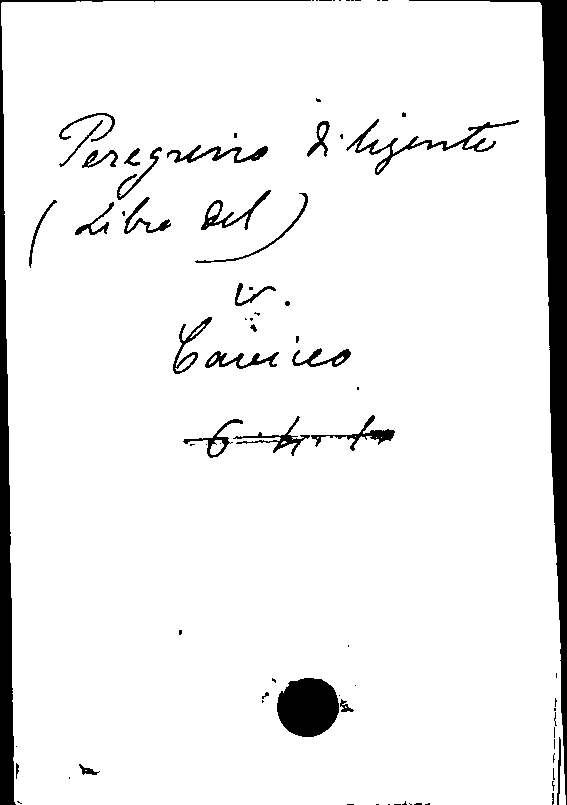 Peregrino diligente
(Libro del)
v.
Caviceo